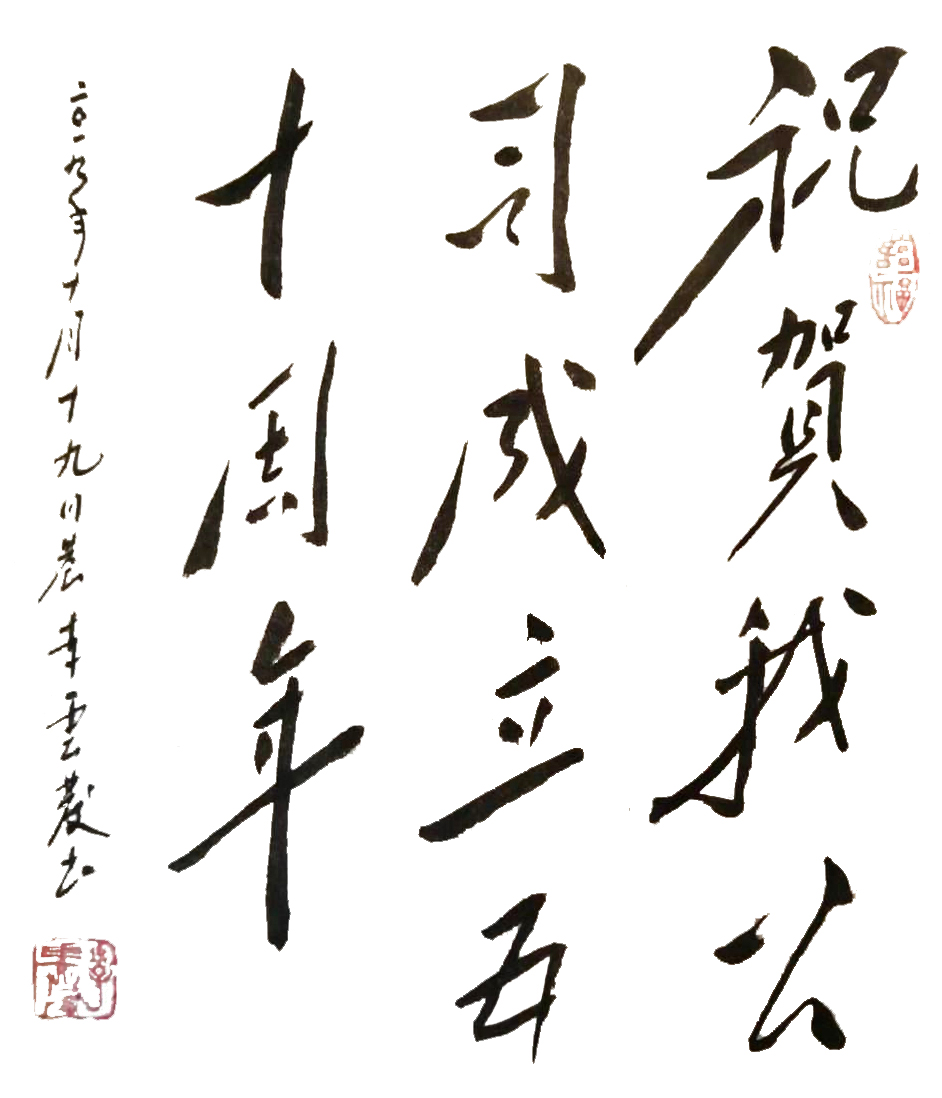 祝賀我公
司成立五
十周年
二〇一九年十月十九日晨李雲發书